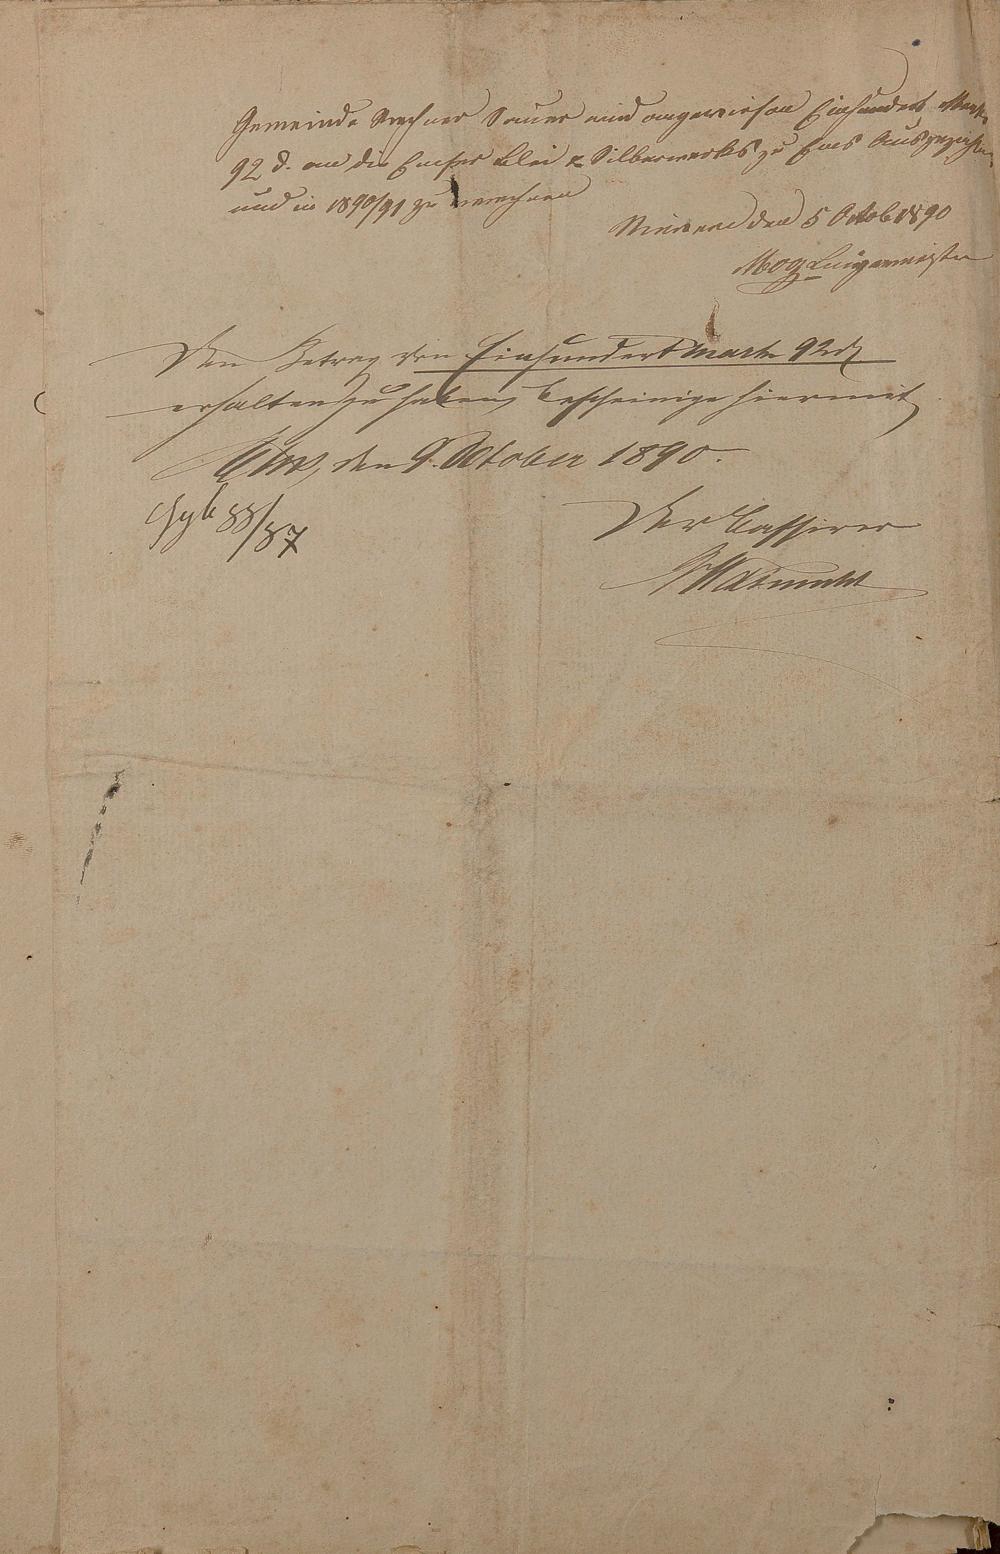 Gemeinde Rechner Sauer wird angewiesen Einhundert Mark
92 d. an die Emser Blei & Silberwerks zu Ems Auszuzahlen
und in 1890/91 zu verrechnen
den 5 Octob 1890
Bürgermeister
Den Betrag von Einhundert Mark 92 d
erhalten zu haben, bescheinige hiermit
Ems, den 9. October 1890.
88/87
Der Cassirer